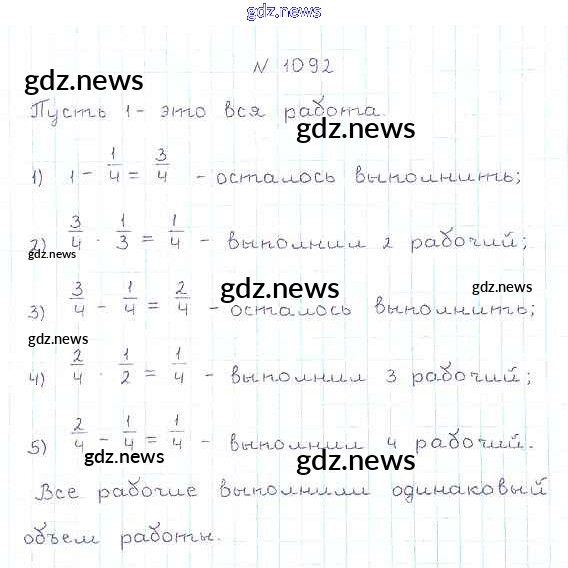 gdz.news
N 1092
gdz.news
Пусть 1 - это вся работа.
gdz.news
1) 1 - 1/4 = 3/4 - осталось выполнить;
2) 3/4 · 1/3 = 1/4 - выполнил 2 рабочий;
gdz.news
gdz.news gdz.news
3) 3/4 - 1/4 = 2/4 - осталось выполнить;
gdz.news
4) 2/4 · 1/2 = 1/4 - выполнил 3 рабочий;
5) 2/4 - 1/4 = 1/4 - выполнил 4 рабочий.
gdz.news gdz.news
Все рабочие выполнили одинаковый
объем работы.